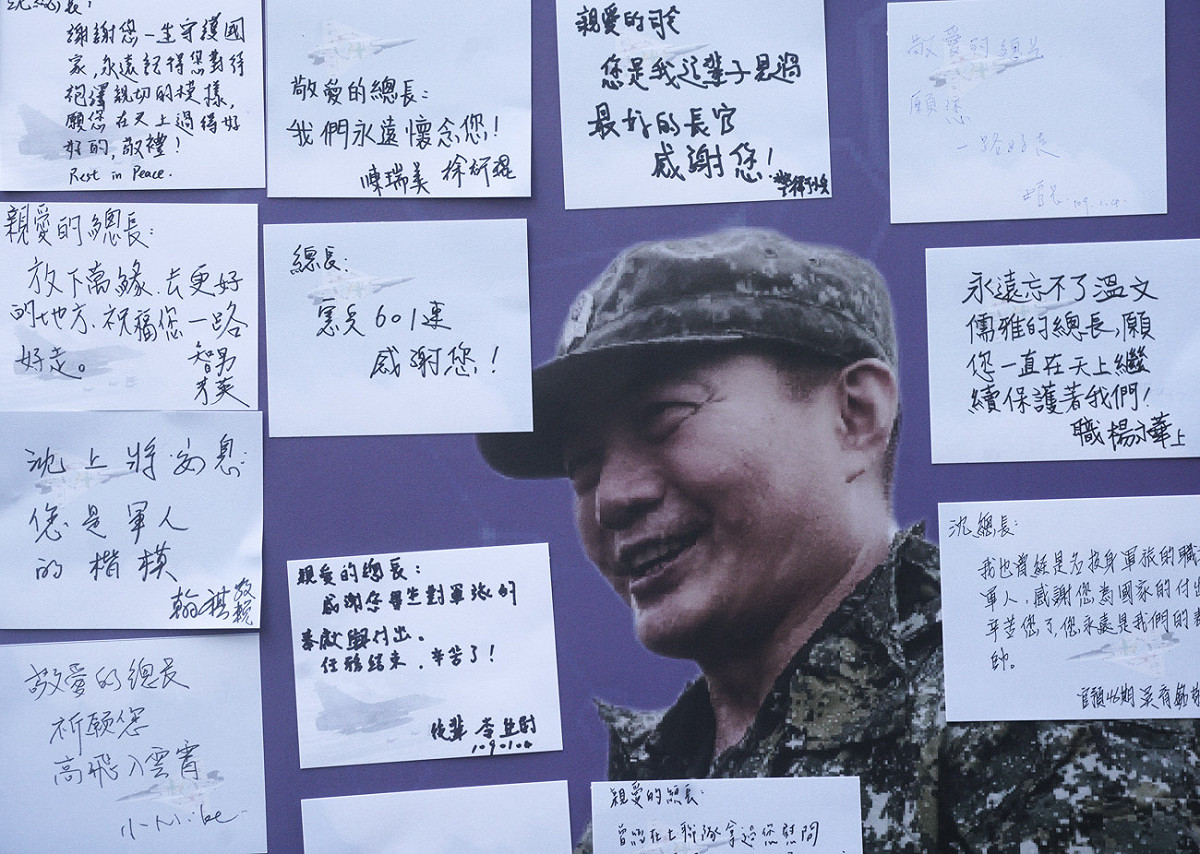 沈總長:
謝謝您一生守護國
家,永遠記得您對待
袍澤親切的模樣,
願您在天上過得好
好的,敬禮!
Rest in Peace.
敬愛的總長:
我們永遠懷念您!
陳瑞美 徐新琨
親愛的司令
您是我這輩子見過
最好的長官
感謝您!
敬愛的總長
願您
一路好走
109.1.4.
親愛的總長:
放下萬緣.去更好
的地方.祝福您一路
好走。
智男
才英
總長:
憲兵601連
感謝您!
永遠忘不了溫文
儒雅的總長,願
您一直在天上繼
續保護著我們!
職 楊 華上
沈上將安息:
您是軍人
的楷模
翰祺 敬輓
親愛的總長:
感謝您畢生對軍旅的
奉獻與付出。
任務結束.辛苦了!
後輩 李
109.01.04
沈總長:
我也曾經是名投身軍旅的職
軍人.感謝您為國家的付出
辛苦您了,您永遠是我們的
帥。
官預46期 吳育
敬愛的總長
祈願您
高飛入雲霄
親愛的總長:
曾經在七聯隊拿過您慰問